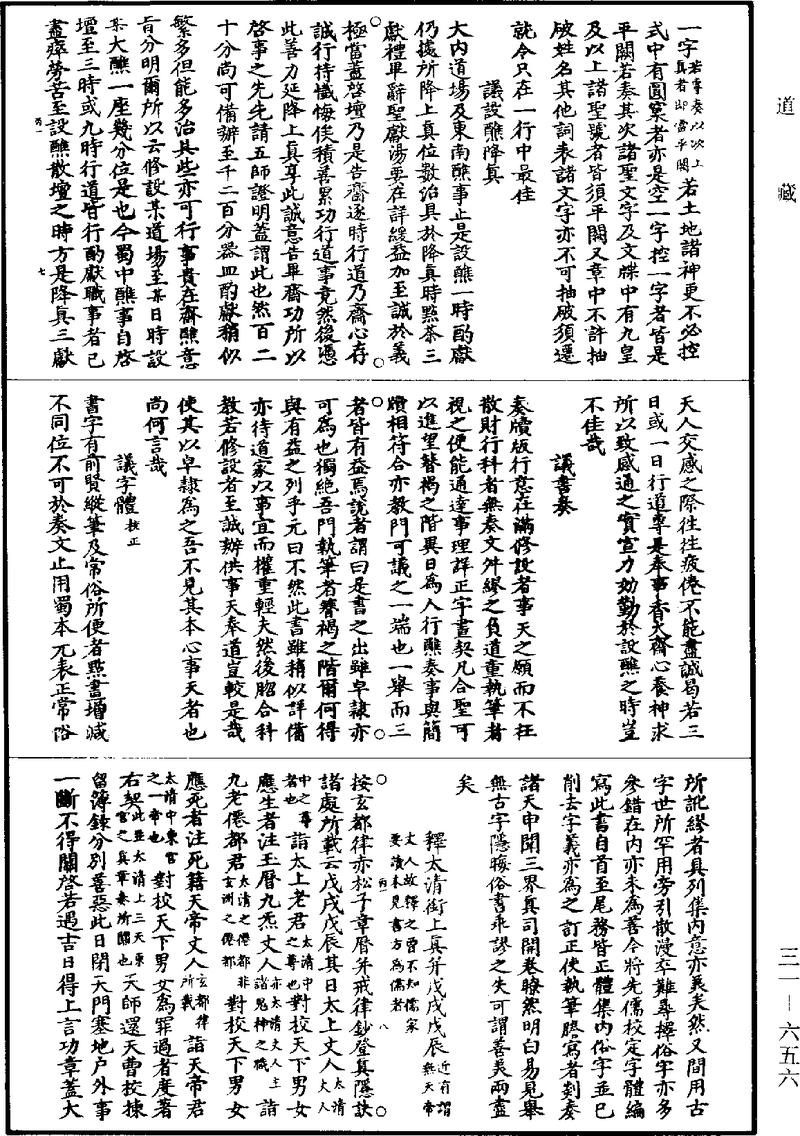 道藏
一字若章奏以次上真者即當平闕若土地諸神更不必控
式中有圓窠者亦是空一字控一字者皆是
平闕若奏其次諸聖文字及文牒中有九皇
及以上諸聖號者皆須平闕又章中不許抽
破姓名其他詞表諸文字亦不可抽破須遷
就令只在一行中最佳
議設醮降真
大內道場及東南醮事止是設醮一時酌獻
仍據所降上真位數治具於降真時點茶三
獻禮畢辭聖獻湯要在詳緩益加至誠於義
極當蓋啓壇乃是告齋逐時行道乃齋心存
誠行持懺悔俟積善累功行道事竟然後憑
此善力延降上真享此誠意告畢齋功所以
啓事之先先請五師證明蓋謂此也然百二
十分尚可備辦至千二百分器皿酌獻稍似
繁多但能多治具些亦可行事貴在齋醮意
旨分明爾所以云修設某道場至某日時設
某大醮一座幾分位是也今蜀中醮事自啓
壇至三時或九時行道皆行酌獻職事者已
盡瘁勞苦至設醮散壇之時方是降真三獻
天人交感之際往往疲倦不能盡誠曷若三
日或一日行道專是奉事香火齋心養神求
所以致感通之實宣力効勤於設醮之時豈
不佳哉
議書奏
奏牘版行意在滿修設者事天之願而不枉
散財行科者無奏文舛繆之負道重執筆者
視之便能通達事理詳正字畫契凡合聖可
以進望替褐之階異日為人行醮奏事與簡
牘相符合亦教門可議之一端也一舉而三
者皆有益焉說者謂曰是書之出雖皁隸亦
可為也獨絶吾門執筆者簪褐之階爾何得
與有益之列乎元曰不然此書雖稍似詳備
亦待道家以事宜而權重輕夫然後脗合科
教若修設者至誠辦供事天奉道豈較是哉
使其以皁隸為之吾不見其本心事天者也
尚何言哉
議字體校正
書字有前賢縱筆及常俗所便者點畫增減
不同位不可於奏文止用蜀本元表正常俗
所訛繆者具列集內意亦美矣然又間用古
字世所罕用旁引散漫卒難尋擇俗字亦多
參錯在內亦未為善今將先儒校定字體編
寫此書自首至尾務皆正體集內俗字並已
削去字義亦為之訂正使執筆謄寫者剡奏
諸天申聞三界真司開卷瞭然明白易見舉
無古字隱晦俗書乖謬之失可謂善美兩盡
矣
釋太清銜上真并戊戌戊辰近有謂無天帝
丈人故釋之曾不知儒家要讀未見書方為儒者
按玄都律亦松子章曆并戒律鈔登真隱訣
諸處所載云戊戌戊辰其日太上丈人太清丈人
中之尊者也詣太上老君太清中之尊也對校天下男女
應生者注玉曆九炁丈人亦太清丈人主諸鬼神之職詣
九老僊都君太清之僊都非玄洲之僊都對校天下男女
應死者注死籍天帝丈人玄都律所載詣天帝君
太清中東宮之一帝也對校天下男女為罪過者度著
右契此並太清上三天東宮之真章奏所關也天師還天曹校揀
留簿錄分別善惡此日閉天門塞地戶外事
一斷不得關啓若遇吉日得上言功章蓋大
三一—六五六